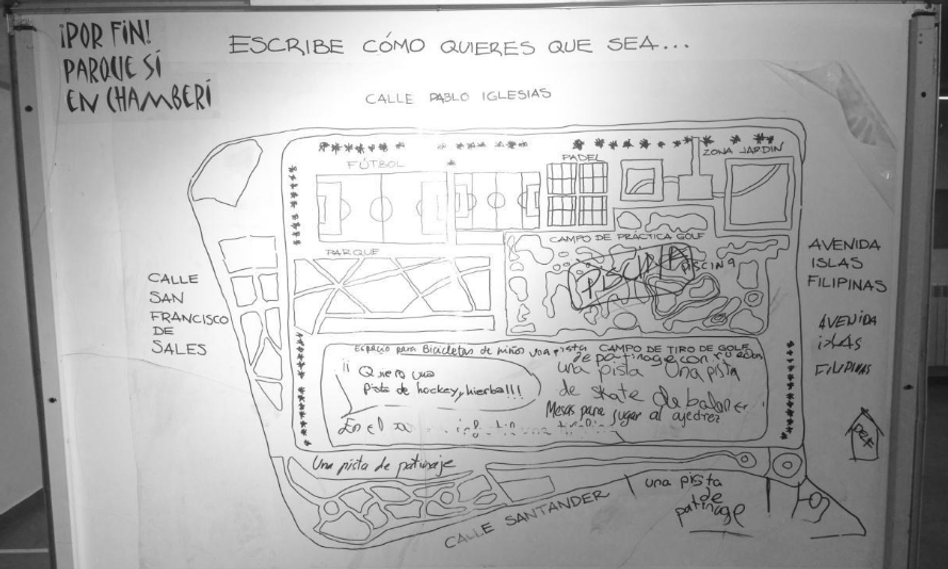 ¡POR FIN!
PARQUE SÍ
EN CHAMBERÍ
ESCRIBE CÓMO QUIERES QUE SEA...
CALLE PABLO IGLESIAS
FÚTBOL
PADEL
ZONA JARDIN
CAMPO DE PRÁCTICA GOLF
PISCINA
PISCINA
PARQUE
CALLE
SAN
FRANCISCO
DE
SALES
AVENIDA
ISLAS
FILIPINAS
AVENIDA
ISLAS
FILIPINAS
ESPACIO para Bicicletas de niños una pista
de patinage con ruedas
CAMPO DE TIRO DE GOLF
¡¡ Quiero una
Pista de hockey, hierba!!!
una pista
de skate
Una pista
de
Mesas para jugar al ajedrez
En el
Una pista de patinaje
CALLE SANTANDER
una pista
de
patinage